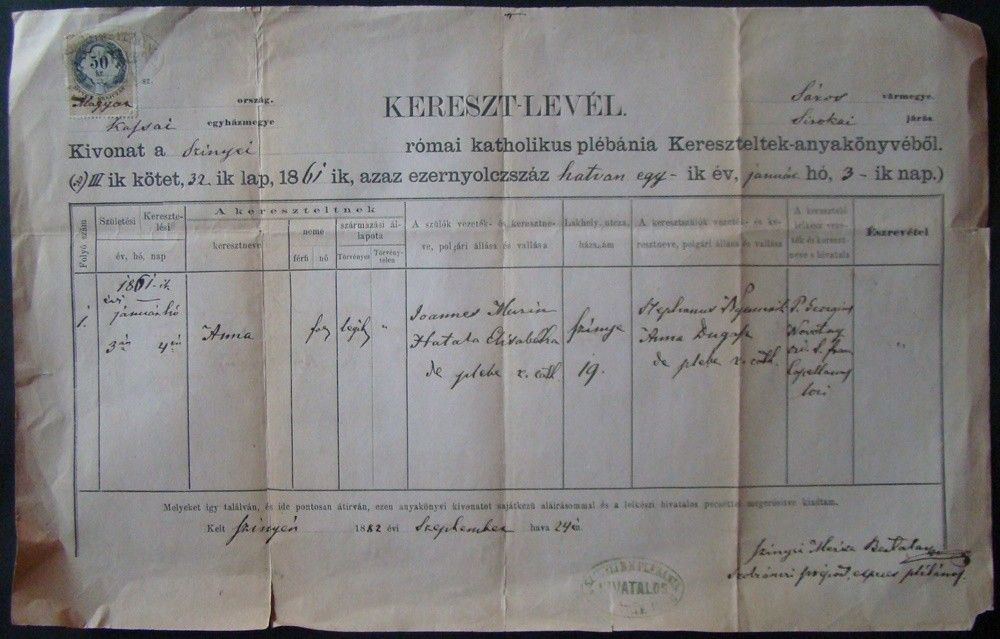 50
kr.
sz.
Magyar ország.
Kassai egyházmegye
KERESZT-LEVÉL.
Sáros vármegye.
Sirokai járás
Kivonat a Szinyei római katholikus plébánia Kereszteltek-anyakönyvéből.
III ik kötet, 32. ik lap, 1861 ik, azaz ezernyolczszáz hatvan egy - ik év, január hó, 3 - ik nap.)
Folyó szám
Születési
Keresztelési
év, hó, nap
A kereszteltnek
keresztneve
neme
férfi
nő
származási állapota
Törvényes
Törvénytelen
A szülők vezeték- és keresztneve, polgári állása és vallása
Lakhely, utcza, házszám
A keresztszülők vezeték- és keresztneve, polgári állása és vallása
A keresztelő lelkész vezeték és keresztneve s hivatala
Észrevétel
1861-ik
január hó
1.
3án
4én
Anna
"
Joannes Murin
Hatala Elisabetha
de plebe r. cath
Szinye
19.
Stephanus
Anna
de plebe r. cath.
P. Georgius
Novotny
Capellanus
loci
"
Melyeket így találván, és ide pontosan átírván, ezen anyakönyvi kivonatot sajátkezű aláírásommal és a lelkészi hivatalos pecséttel megerősítve kiadtam.
Kelt Szinyén 1882 évi Szeptember hava 24én.
Szinyei Merse Bertalan
plébános.
HIVATALOS